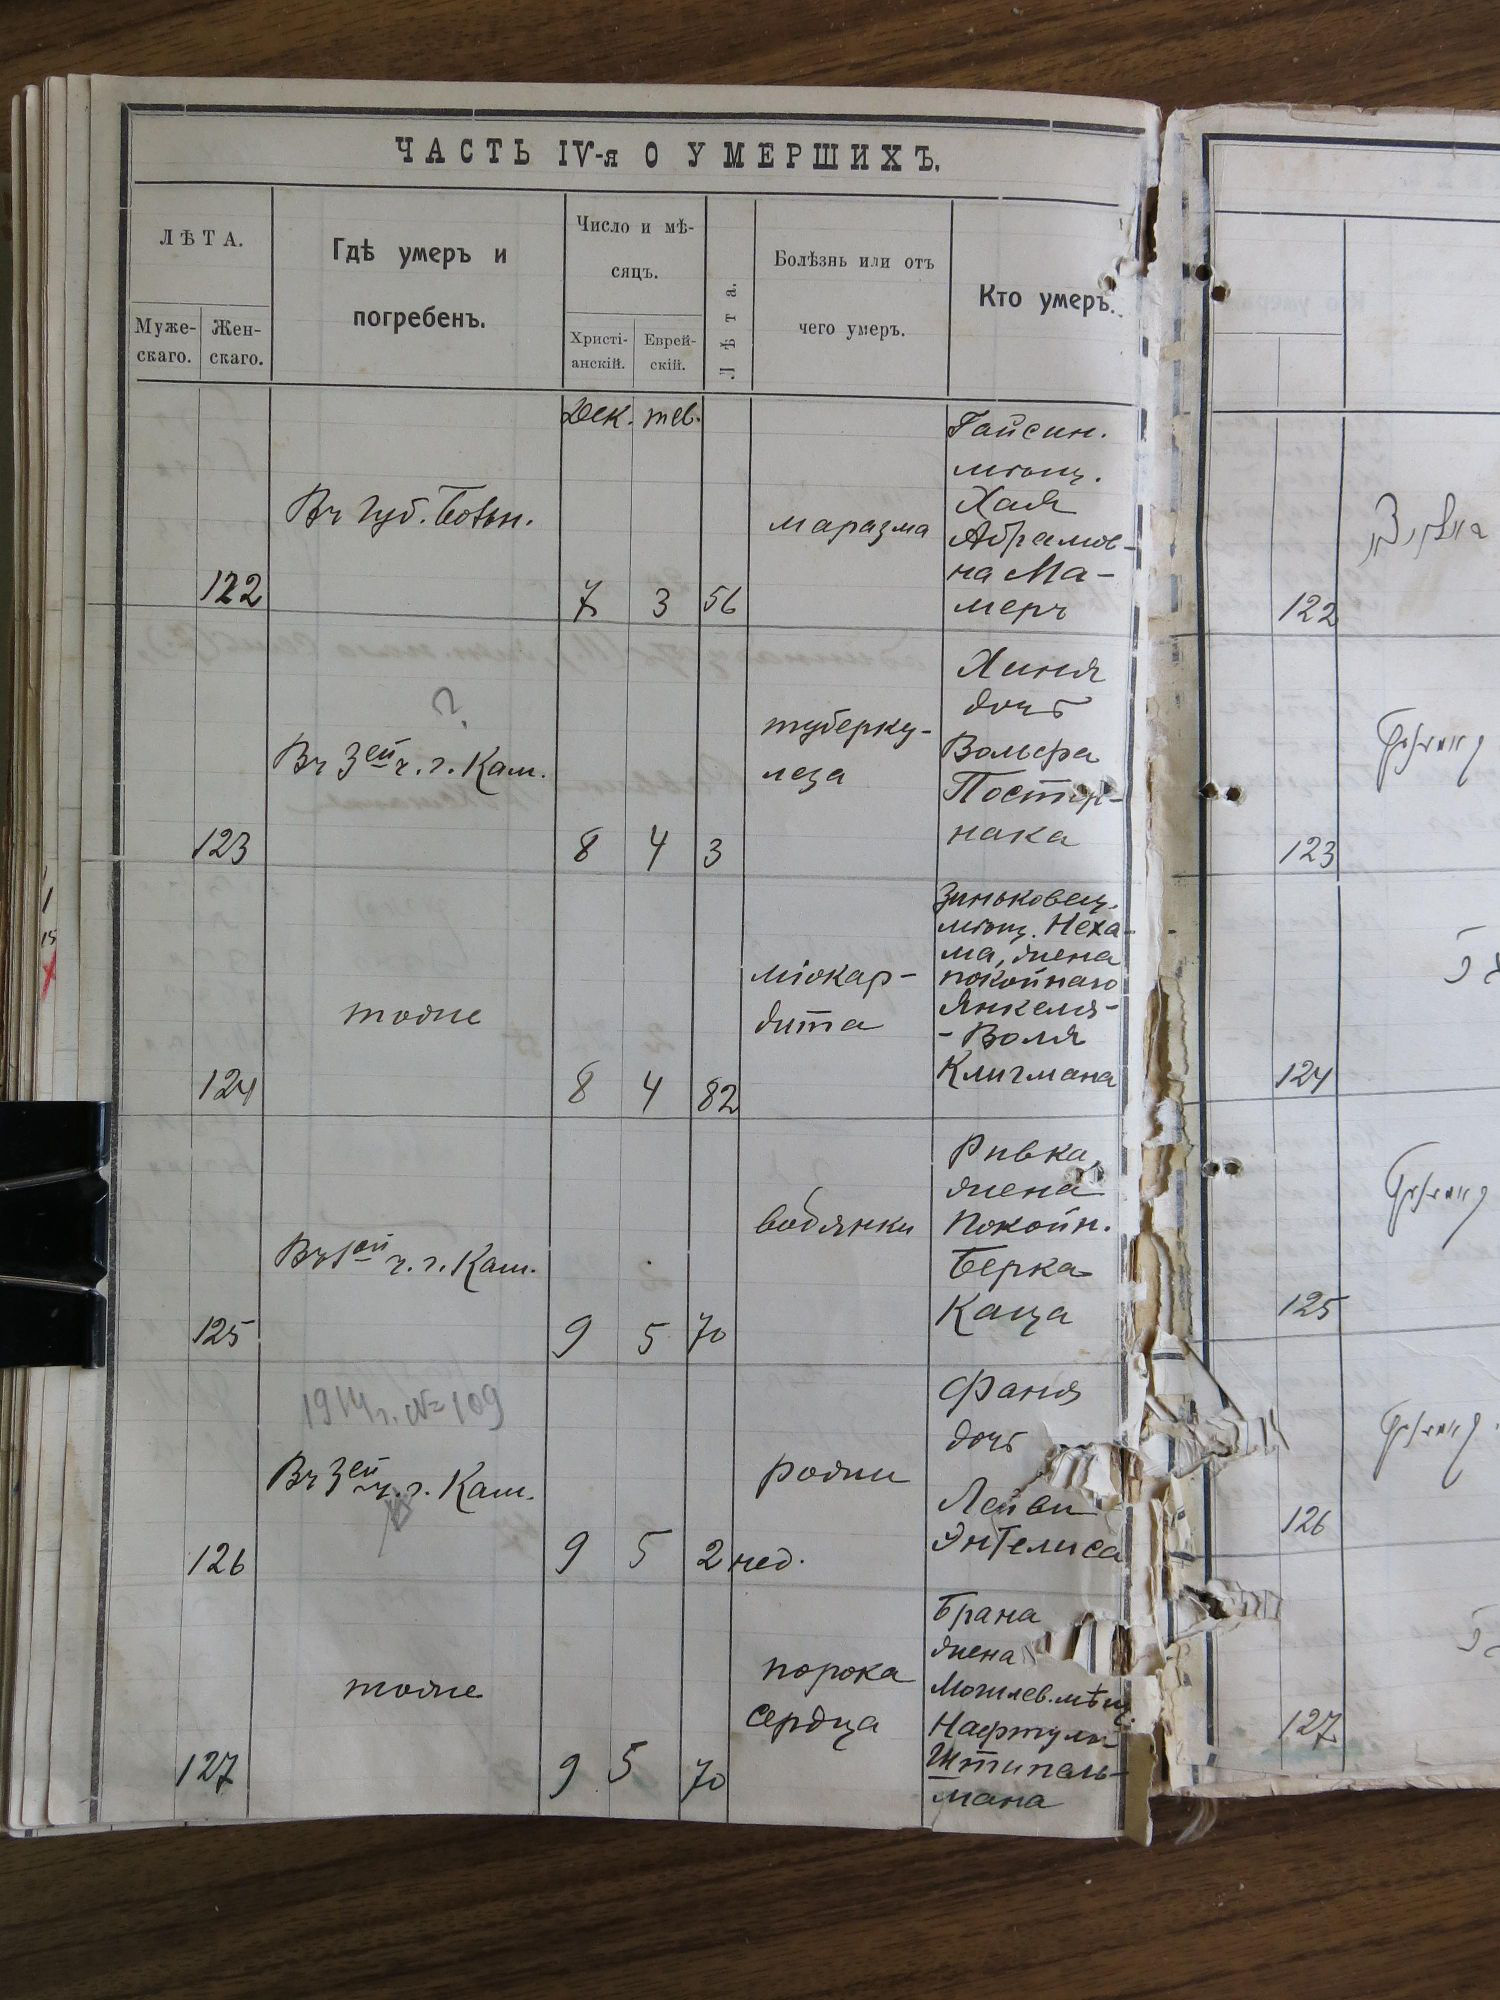 ЧАСТЬ IV-я О УМЕРШИХЪ.
ЛѢТА.
Муже-
скаго.
Жен-
скаго.
Гдѣ умеръ и
погребенъ.
Число и мѣ-
сяцъ.
Христі-
анскій.
Еврей-
скій.
Лѣта.
Болѣзнь или отъ
чего умеръ.
Кто умеръ.
Дек. тев.
122
Въ губ. больн.
7 3 56
маразма
Гайсин.
мѣщ.
Хая
Абрамов-
на Ма-
меръ
122
?
123
Въ 3ей ч. г. Кам.
8 4 3
туберку-
леза
Хиня
дочь
Вольфа
Постер-
нака
123
124
тоже
8 4 82
міокар-
дита
Зиньковец.
мѣщ. Неха-
ма, жена
покойнаго
Янкеля-
- Воля
Клигмана
124
125
Въ 1ой ч. г. Кам.
9 5 70
водянки
Ривка,
жена
покойн.
Берка
Каца
125
1914 г. №109
126
Въ 3ей ч. г. Кам.
9 5 2 нед.
родни
Фаня
дочь
Лейви
Энгелиса
126
127
тоже
9 5 70
порока
сердца
Брана
жена
Могилев. мѣщ.
Нафтули
Штипель-
мана
127